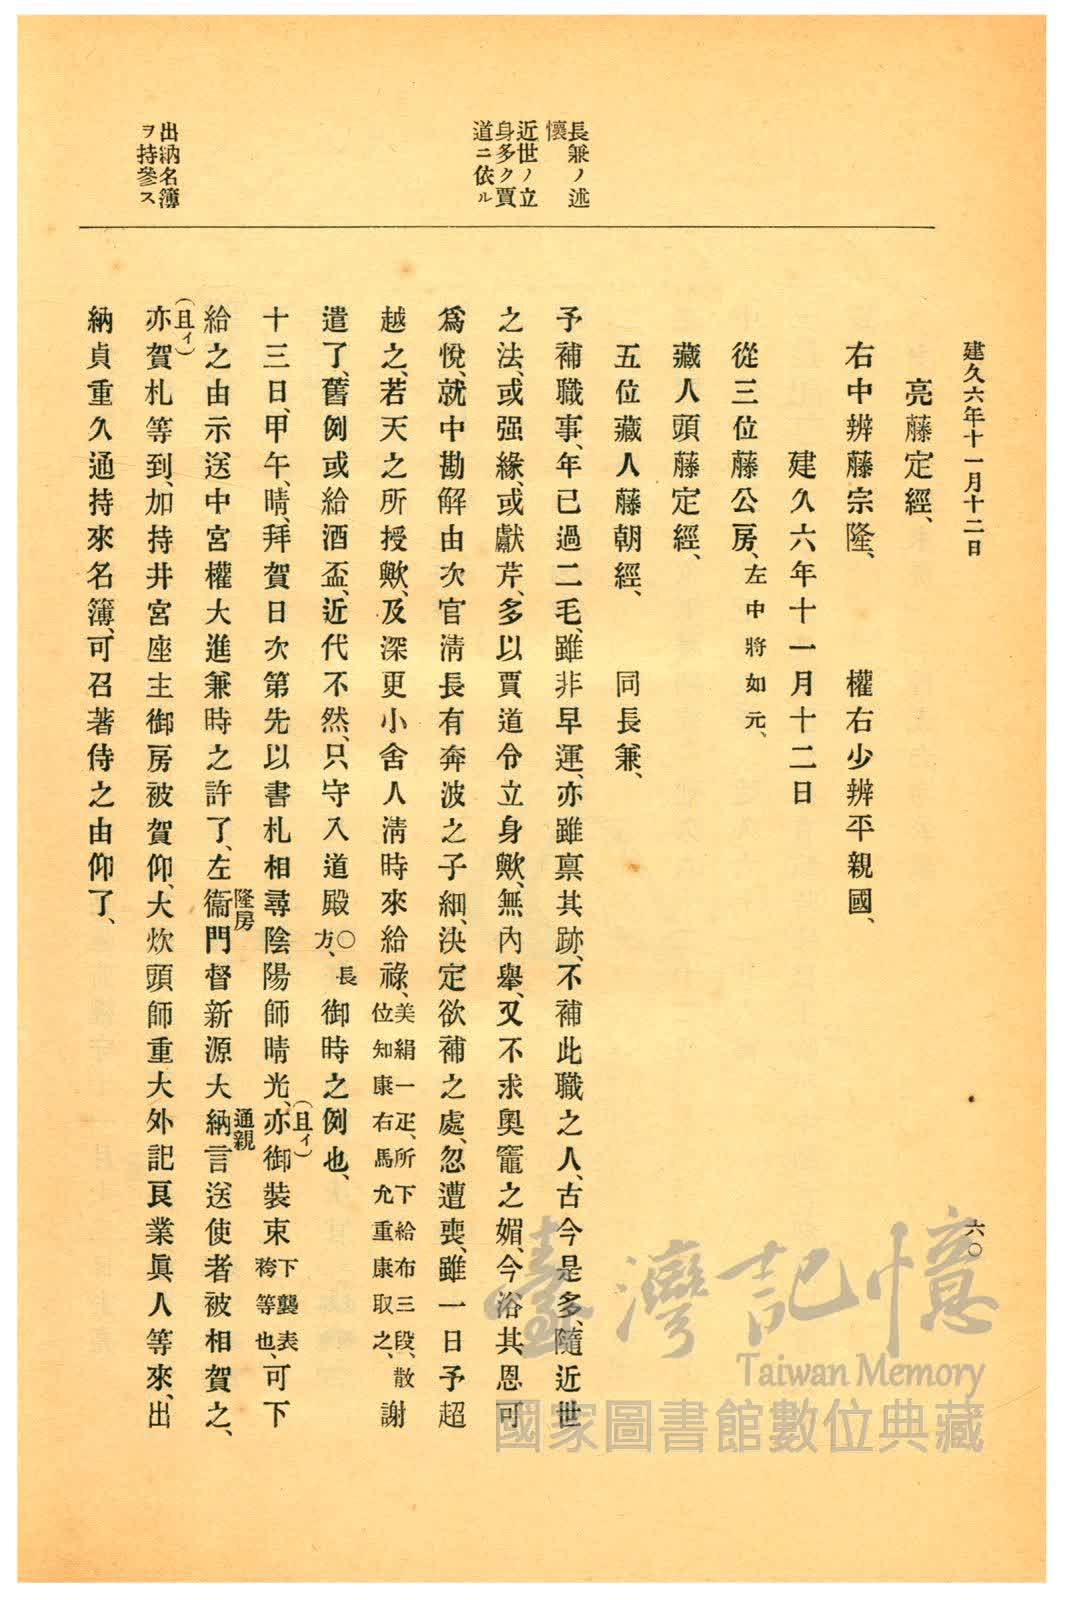 建久六年十一月十二日
六〇
長兼ノ述
懷
近世ノ立
身多ク賈
道ニ依ル
出納名簿
ヲ持參ス
亮藤定經、
右中辨藤宗隆、　權右少辨平親國、
建久六年十一月十二日
從三位藤公房、左中將如元、
藏人頭藤定經、
五位藏人藤朝經、　同長兼、
予補職事、年已過二毛、雖非早運、亦雖禀其跡、不補此職之人、古今是多、隨近世
之法、或强緣、或獻芹、多以賈道令立身歟、無內舉、又不求奧竈之媚、今浴其恩可
爲悅、就中勘解由次官淸長有奔波之子細、決定欲補之處、忽遭喪、雖一日予超
越之、若天之所授歟、及深更小舍人淸時來給祿、美絹一疋、所下給布三段、散位知康右馬允重康取之、謝
遣了、舊例或給酒盃、近代不然、只守入道殿〇長方、御時之例也、
十三日、甲午、晴、拜賀日次第先以書札相尋陰陽師晴光、亦(且イ)御裝束下襲表袴等也、可下
給之由示送中宮權大進兼時之許了、左衞門督隆房新源大納言通親送使者被相賀之、
亦(且イ)賀札等到、加持井宮座主御房被賀仰、大炊頭師重大外記良業眞人等來、出
納貞重久通持來名簿、可召著侍之由仰了、
臺灣記憶
Taiwan Memory
國家圖書館數位典藏